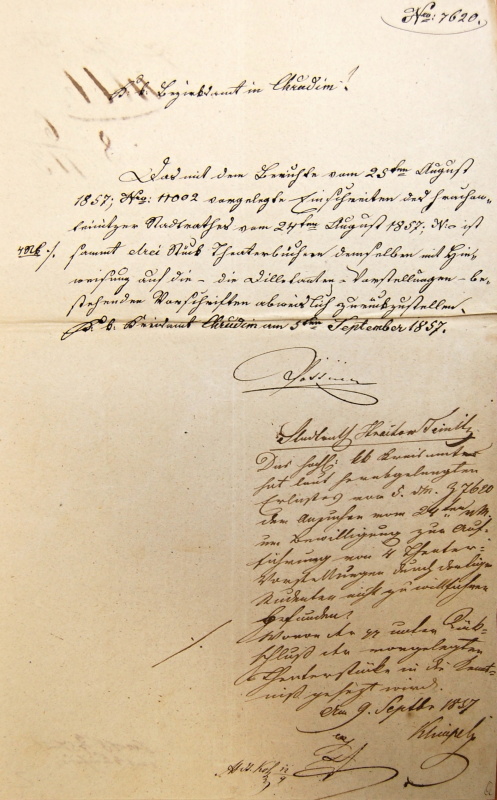 Nro: 7620.
K. k. Bezirksamt in Chrudim!
Das mit dem Berichte vom 25ten August
1857, Nro: 11002 vorgelegte Einschreiten des Hrochow-
teinitzer Stadtrathes vom 24ten August 1857, Nro ist
4 Stk ·/.
sammt drei Stück Theaterbüchern demselben mit Hin-
weisung auf die - die Dilletanten-Vorstellungen - be-
stehenden Vorschriften abweislich zurückzustellen.
K. k. Kreisamt Chrudim am 5ten September 1857.
Stadtrath Hrochow Teinitz
Das hochl: kk Kreisamt
hat laut herabgelangten
Erlasses vom 5. dM. Z 7620
dem Ansuchen vom 24ten v.M.
um Bewilligung zur Auf-
führung von 4 Theater-
Vorstellungen durch dortige
Studenten nicht zu willfahren
befunden.
Wovon der unter Rück-
·/.
schluß der vorgelegten
Theaterstücke in die Kennt-
niß gesetzt wird.
Am 9. Septbr 1857